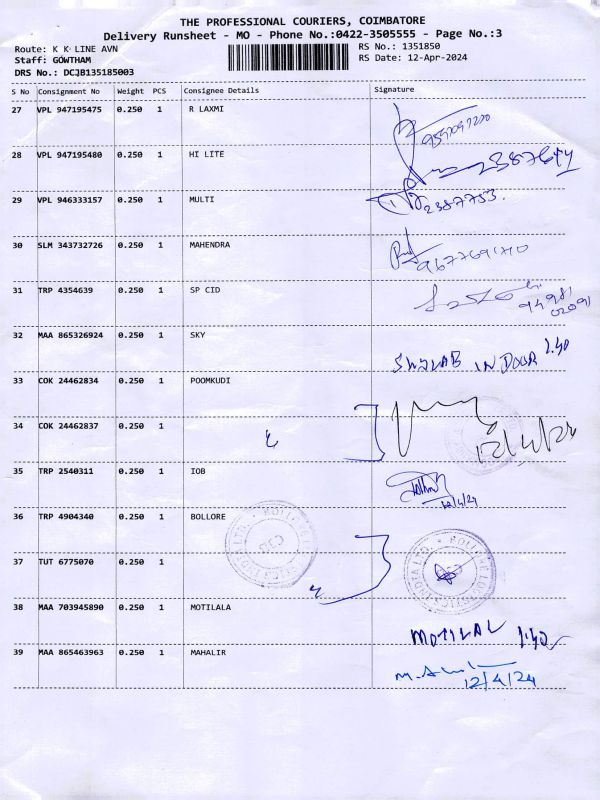 THE PROFESSIONAL COURIERS, COIMBATORE
Delivery Runsheet - MO - Phone No.:0422-3505555 - Page No.:3
Route: K K LINE AVN
RS No.: 1351850
Staff: GOWTHAM
RS Date: 12-Apr-2024
DRS No.: DCJB135185003
S No Consignment No Weight PCS Consignee Details Signature
27 VPL 947195475 0.250 1 R LAXMI
28 VPL 947195480 0.250 1 HI LITE
29 VPL 946333157 0.250 1 MULTI 2387753.
30 SLM 343732726 0.250 1 MAHENDRA
31 TRP 4354639 0.250 1 SP CID
32 MAA 865326924 0.250 1 SKY
IN DOOR
33 COK 24462834 0.250 1 POOMKUDI
34 COK 24462837 0.250 1 12/4/24
35 TRP 2540311 0.250 1 IOB
12/4/24
36 TRP 4904340 0.250 1 BOLLORE
37 TUT 6775070 0.250 1
38 MAA 703945890 0.250 1 MOTILALA
MOTILAL 1:40
39 MAA 865463963 0.250 1 MAHALIR
12/4/24